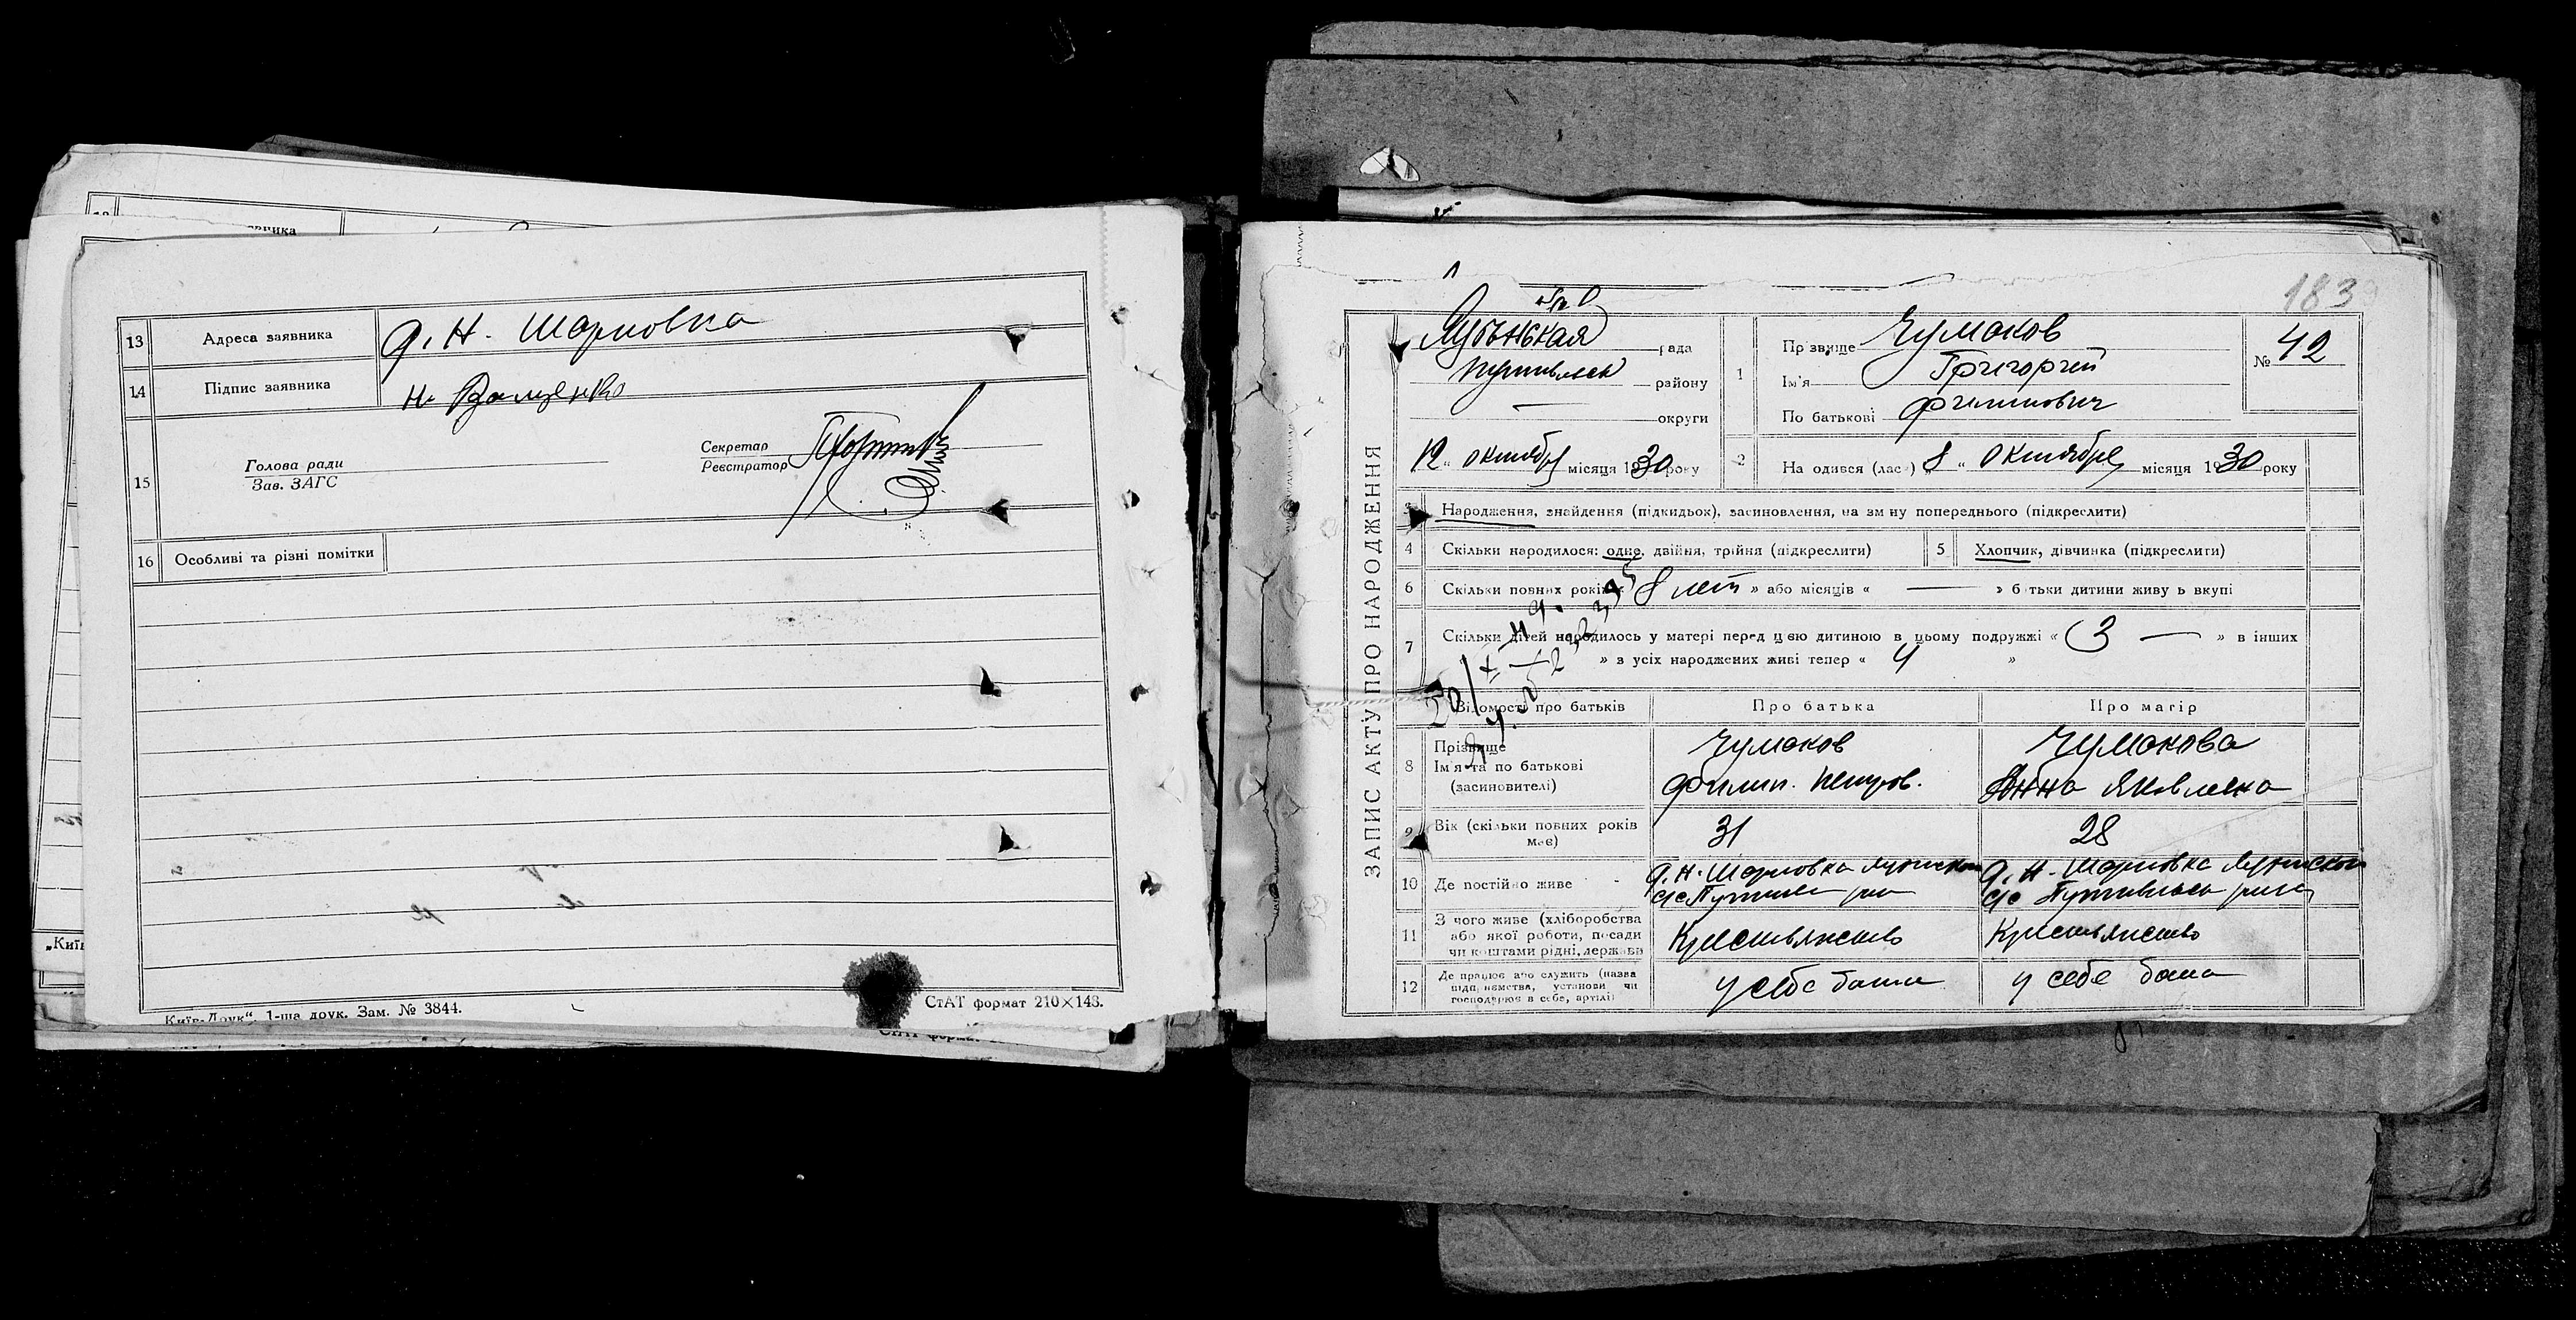 13 Адреса заявника д. Н. Шарповка
14 Підпис заявника Н. Ващенко
15 Голова ради
Зав. ЗАГС
Секретар
Реєстратор
16 Особливі та різні помітки
Київ-Друк", 1-ша друк. Зам. № 3844.
СтАТ формат 210×148.
183
ЗАПИС АКТУ ПРО НАРОДЖЕННЯ
рада
району
округи
12 " октября місяця 1930 року
1 Прізвище Чумаков
Ім'я Григорий
По батькові Филипович
№ 42
2 На одився (лась) " 8 " Октября місяця 1930 року
3 Народження, знайдення (підкидьок), засиновлення, на зміну попереднього (підкреслити)
4 Скільки народилося: одне, двійня, трійня (підкреслити)
5 Хлопчик, дівчинка (підкреслити)
6 Скільки повних років « 8 лет » або місяців « — » батьки дитини живуть вкупі
7 Скільки дітей народилось у матері перед цією дитиною в цьому подружжі « 3 — » в інших
» з усіх народжених живі тепер « 4 »
Відомості про батьків
Про батька
Про матір
8 Прізвище
Ім'я та по батькові
(засиновителі)
Чумаков
Филип. Петров.
Чумакова
Анна Яковлевна
9 Вік (скільки повних років
має)
31
28
10 Де постійно живе
д. Н. Шарповка
с/с Путивл
д. Н. Шарповка
с/с Путивльск
11 З чого живе (хліборобства
або якої роботи, посади
чи коштами рідні, держави
Крестьянство
Крестьянство
12 Де працює або служить (назва
підприємства, установи чи
господарює в себе, артілі)
у себе дома
у себе дома